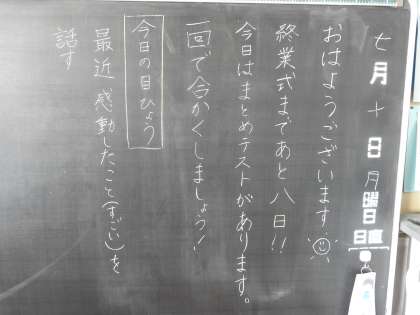 七月十日月曜日
日直
おはようございます
終業式まであと八日!!
今日はまとめテストがあります。
一回で合かくしましょう!!
今日の目ひょう
最近感動したこと(すごい)を
話す